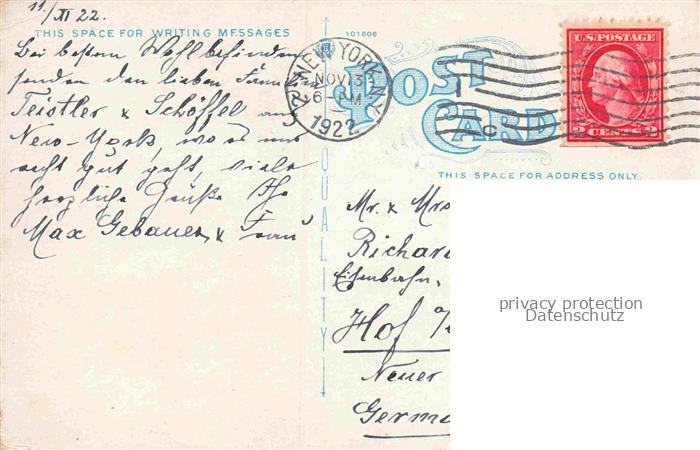 11./XI 22.
THIS SPACE FOR WRITING MESSAGES
Bei bestem Wohlbefinden
senden den lieben Familien
Teistler & Schöffel aus
New-York, wo es uns
recht gut geht, viele
herzliche Grüße Ihr
Max Gebauer & Frau
101606
NEW YORK, N.Y.
NOV 13
6 PM
1922
POST
CARD
QUALITY
U.S. POSTAGE
2 CENTS 2
THIS SPACE FOR ADDRESS ONLY.
Mr. & Mrs
Richard
Eisenbahn-
Hof
Neuer
Germa
privacy protection
Datenschutz